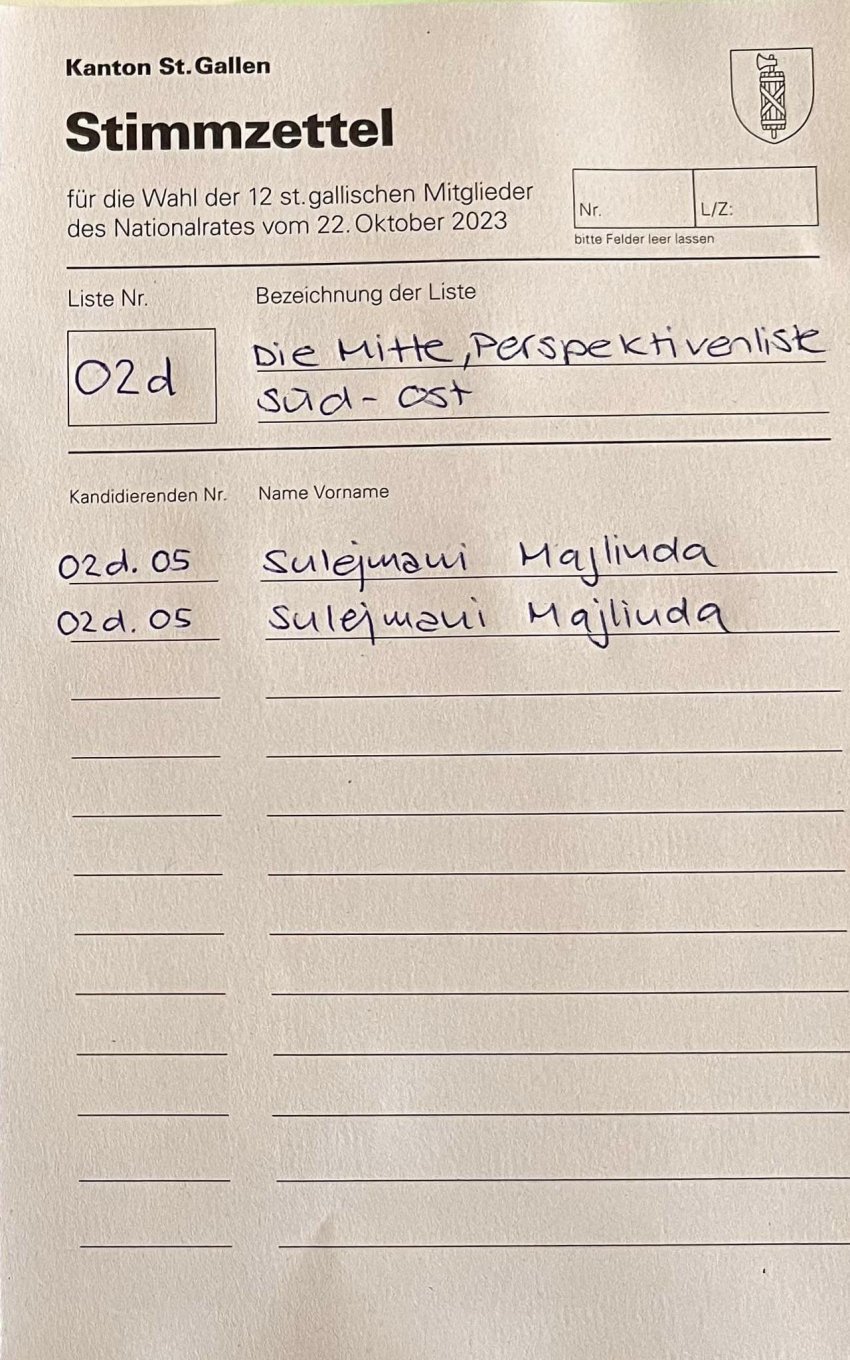 Kanton St.Gallen
Stimmzettel
für die Wahl der 12 st.gallischen Mitglieder
des Nationalrates vom 22. Oktober 2023
Nr.
L/Z:
bitte Felder leer lassen
Liste Nr.
Bezeichnung der Liste
02d
Die Mitte, Perspektivenliste
Süd-Ost
Kandidierenden Nr.
Name Vorname
02d. 05 Sulejmani Majlinda
02d. 05 Sulejmani Majlinda